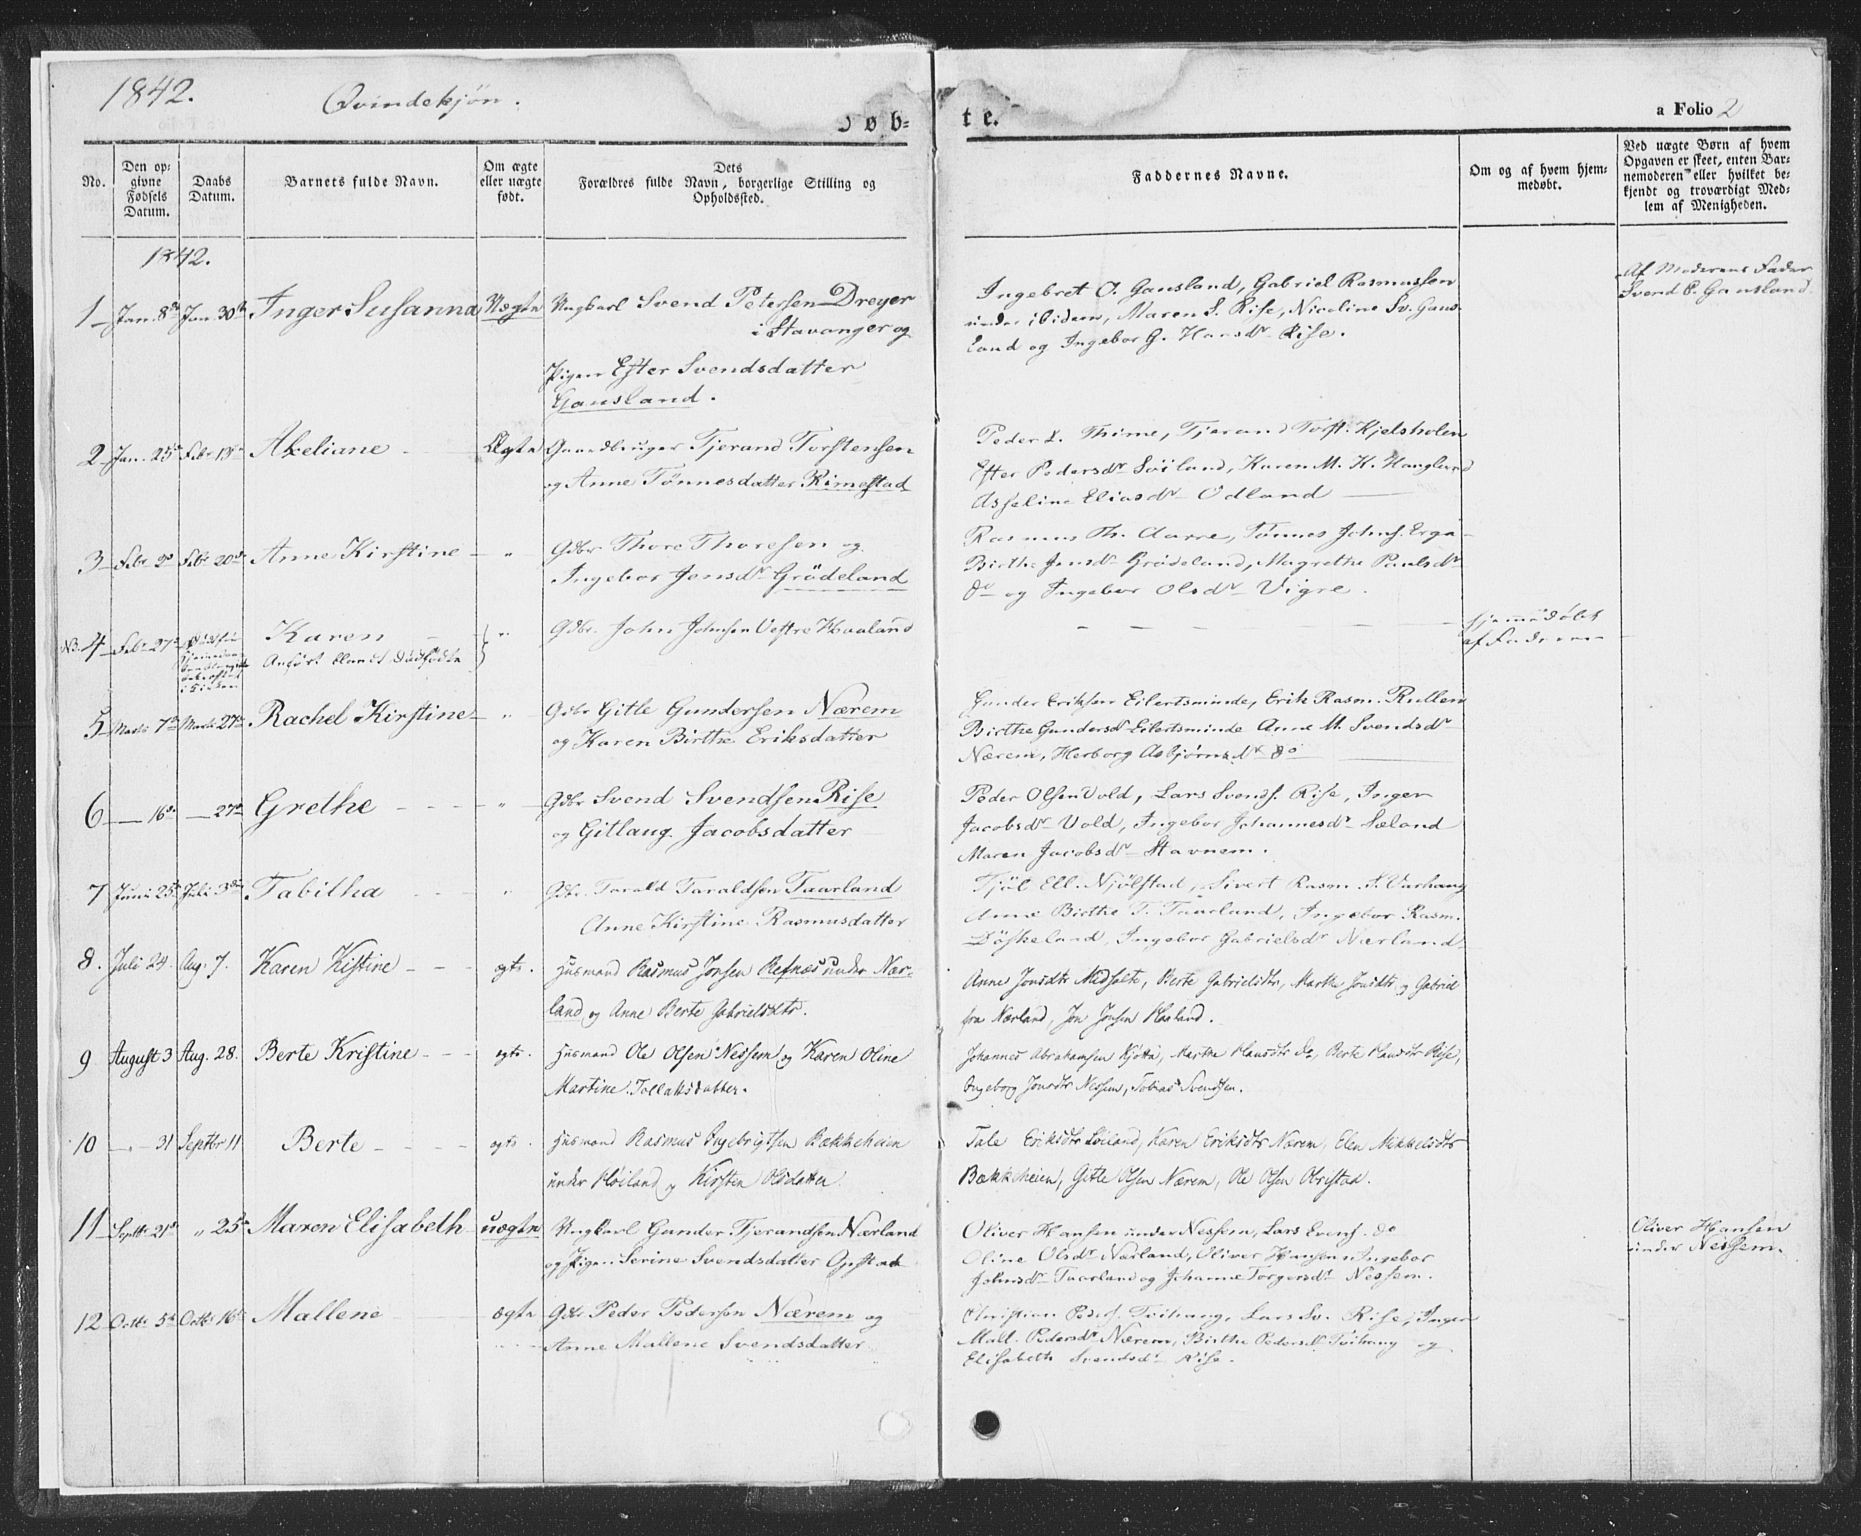 1842. Qvindekjøn.
øb- te. a Folio 2
No.
Den opgivne Fødsels Datum.
Daabs Datum.
Barnets fulde Navn.
Om ægte eller uægte født.
Dets
Forældres fulde Navn, borgerlige Stilling og
Opholdssted.
Faddernes Navne.
Om og af hvem hjem-
medøbt.
Ved uægte Børn af hvem
Opgaven er skeet, enten Bar-
nemoderen eller hvilket be-
kjendt og troværdigt Med-
lem af Menigheden.
1842.
1 Jan. 8de Jan. 30te Inger Susanna Uægte Ungkarl Svend Petersen Dreyer
i Stavanger og
Pigen Efter Svendsdatter
Gausland.
Ingebret O. Gausland, Gabriel Rasmussen
under ibidem, Maren S. Rise, Nicoline Sv. Gaus-
land og Ingebor G. Hansdr Rise.
Af Moderens Fader
Svend P. Gausland.
2 Jan. 25de Febr 13de Axeliane Ægte Gaardbruger Tjerand Torstensen
og Anne Tønnesdatter Rimestad
Peder L. Thime, Tjerand Torst. Kjelsholen
Efter Pedersdr Søiland, Karen M. K. Haugland
Asseline Eliasdr Odland
3 Febr 9d Febr 20de Anne Kirstine " Gdbr Thore Thoresen og
Ingebor Jensdr Grödeland
Rasmus Th. Aarre, Tønnes Johns. Erga
Birthe Jensdr Grødeland, Magrethe Paulsdr
do og Ingebor Olsdr Vigre.
NB. 4 Febr 27de Karen " Gdbr. John Johnsen Vestre Haaland
Anført blandt dødfødte
i Kirken
hjemmedøbt
af Faderen
5 Marts 7de Marts 27de Rachel Kirstine " Gdbr Gitle Gundersen Nærem
og Karen Birthe Eriksdatter
Gunder Eriksen Eilertsminde, Erik Rasm. Rullen
Birthe Gundersdr Eilertsminde Anne M. Svendsdr
Nærem, Herborg Asbjørnsdr do
6 — 16de — 27de Grethe " Gdbr Svend Svendsen Rise
og Gitlaug Jacobsdatter
Peder Olsen Vold, Lars Svends. Rise, Inger
Jacobsdr Vold, Ingebor Johannesdr Sæland
Maren Jacobsdr Stavnem.
7 Juni 25de Juli 3die Tabitha " Gdbr. Tarald Taraldsen Taarland
Anne Kirstine Rasmusdatter
Tjøl Ell. Njølstad, Sivert Rasm. N. Varhaug
Anne Birthe T. Taarland, Ingebor Rasm.
Døskeland, Ingebor Gabrielsdr Nærland.
8. Juli 24. Aug. 7. Karen Kistine egte. Husmand Rasmus Jonsen Refnæs under Nær-
land og Anne Berte Gabrielsdtr.
Anne Jonsdtr Madholte, Berte Gabrielsdtr, Martha Jonsdtr og Gabriel
fra Nærland, Jon Jonsen Haaland.
9 August 3 Aug. 28. Berte Kristine egte. Husmand Ole Olsen Nessem og Karen Oline
Martine Tollaksdatter.
Johannes Abrahamsen Kjøtta, Marthe Hansdtr do, Berte Hansdtr Rise,
Ingeborg Jonsdtr Nessem, Tobias Svendsen.
10 — 31 Septbr 11 Berte egte. Husmand Rasmus Ingebrigtsen Bækkeheien
under Høiland og Kirsten Olsdatter.
Tale Eriksdtr Løiland, Karen Eriksdtr Nærem, Elen Mikkelsdtr
Bækkeheien, Gitle Olsen Nærem, Ole Olsen Obristad.
11 Septbr 21de " 25de Maren Elisabeth uægte Ungkarl Gunder Tjerandsen Nærland
og Pigen Serine Svendsdatter Opstad
Oliver Hansen under Nessem, Lars Evens. do
Oline Olsdr Nærland, Oliver Hansen Ingebor
Johnsdr Taarland og Johanne Torgersdr Nessem.
Oliver Hansen
under Nessem.
12 Octbr 5te Octbr 16de Mallene ægte Gdbr Peder Pedersen Nærem og
Anne Mallene Svendsdatter
Christian Peders. Tvihaug, Lars Sv. Rise, Inger
Mall. Pedersdr Nærem, Birthe Pedersdr Tvihaug og
Elisabeth Svendsdr Rise.